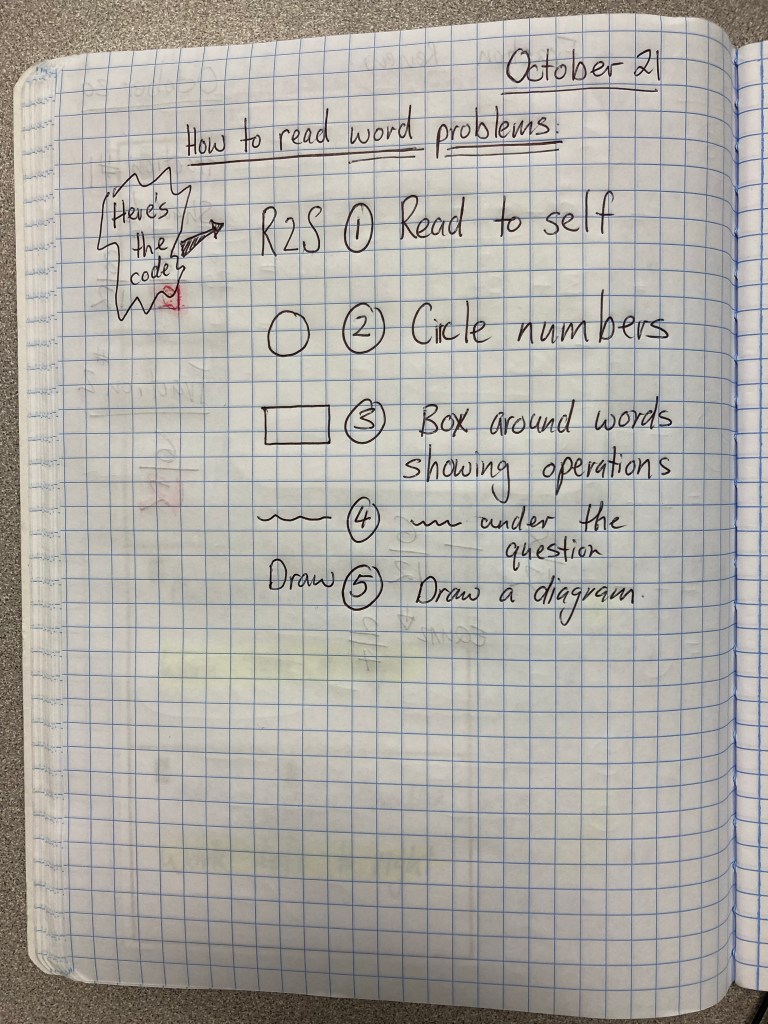 October 21
How to read word problems:
Here's
the
code
R2S ① Read to self
② Circle numbers
③ Box around words
showing operations
④ under the
question
Draw ⑤ Draw a diagram.